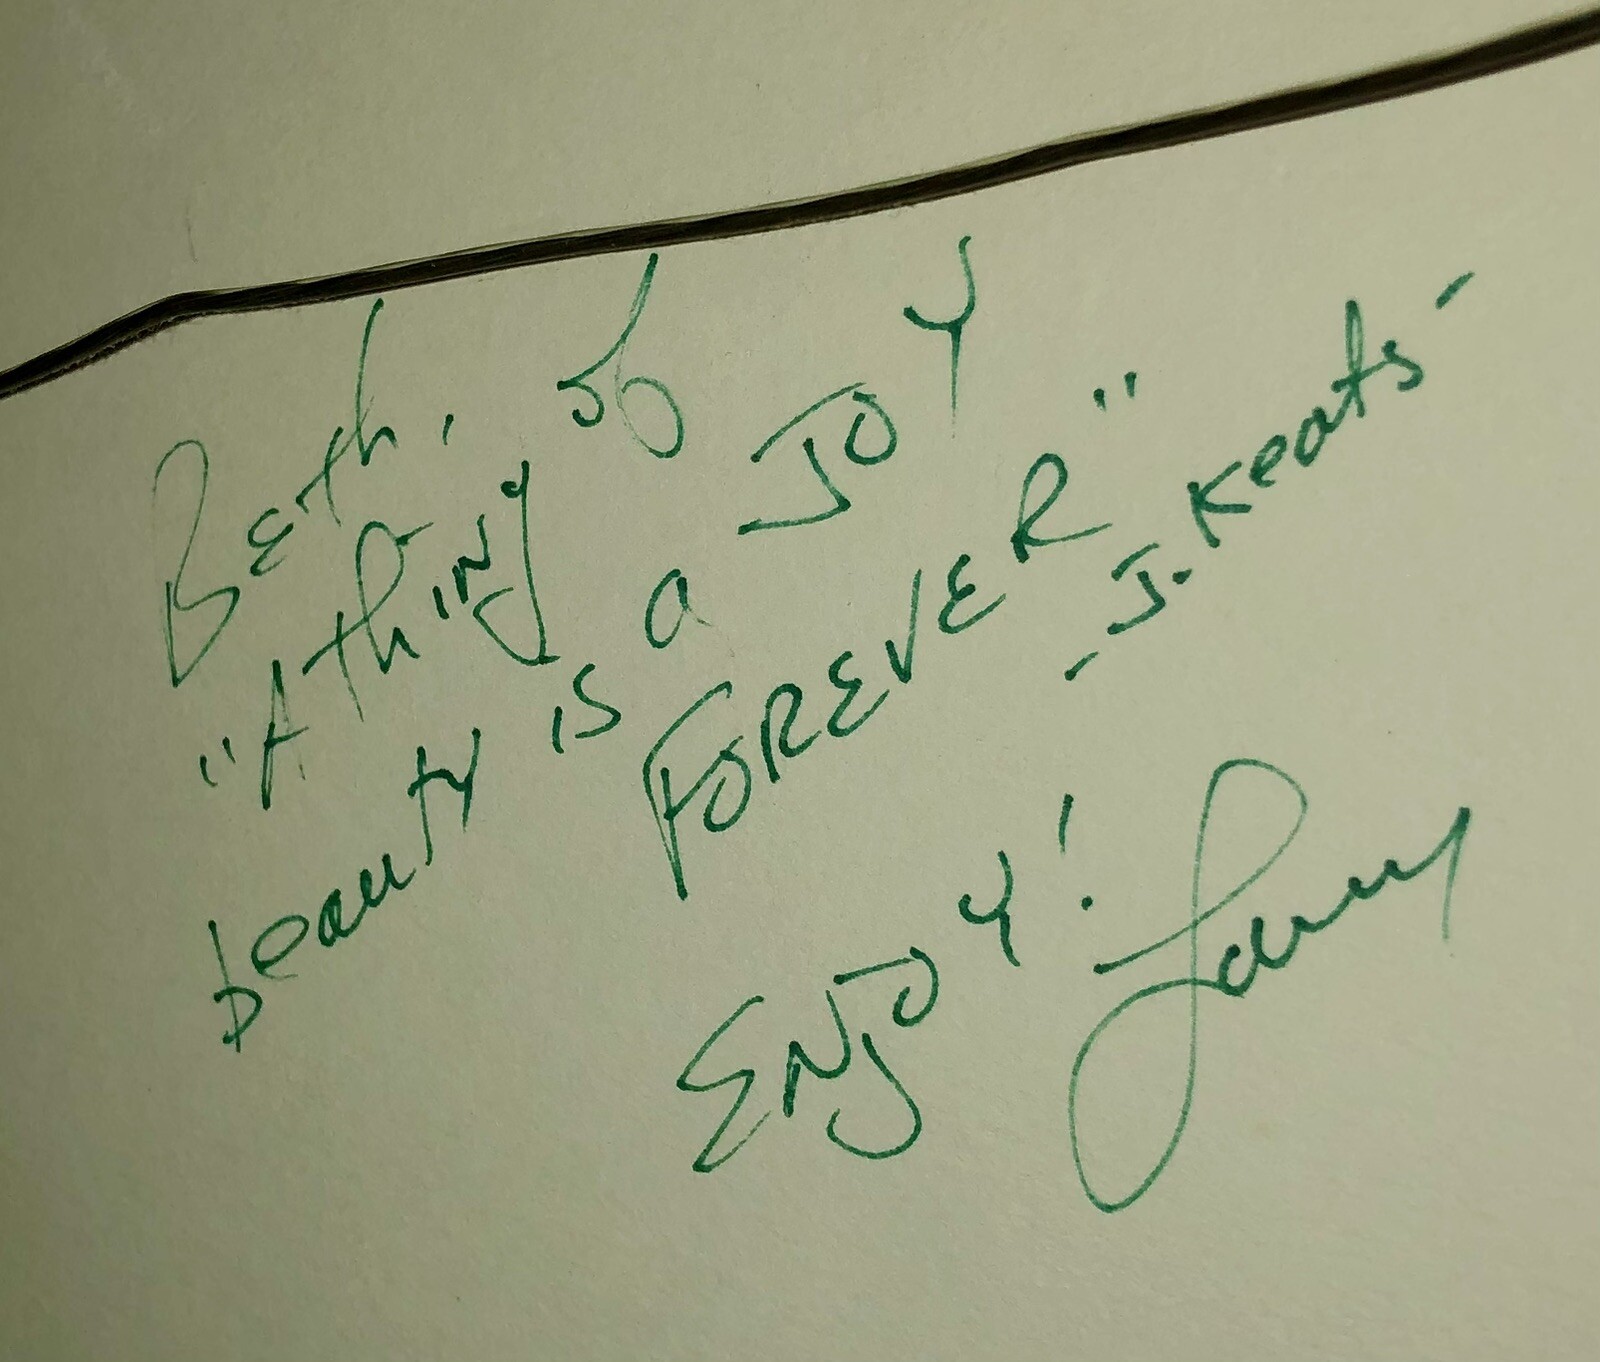 Beth,
"A thing of
beauty is a JOY
FOREVER"
-J. Keats-
ENJOY!
Larry